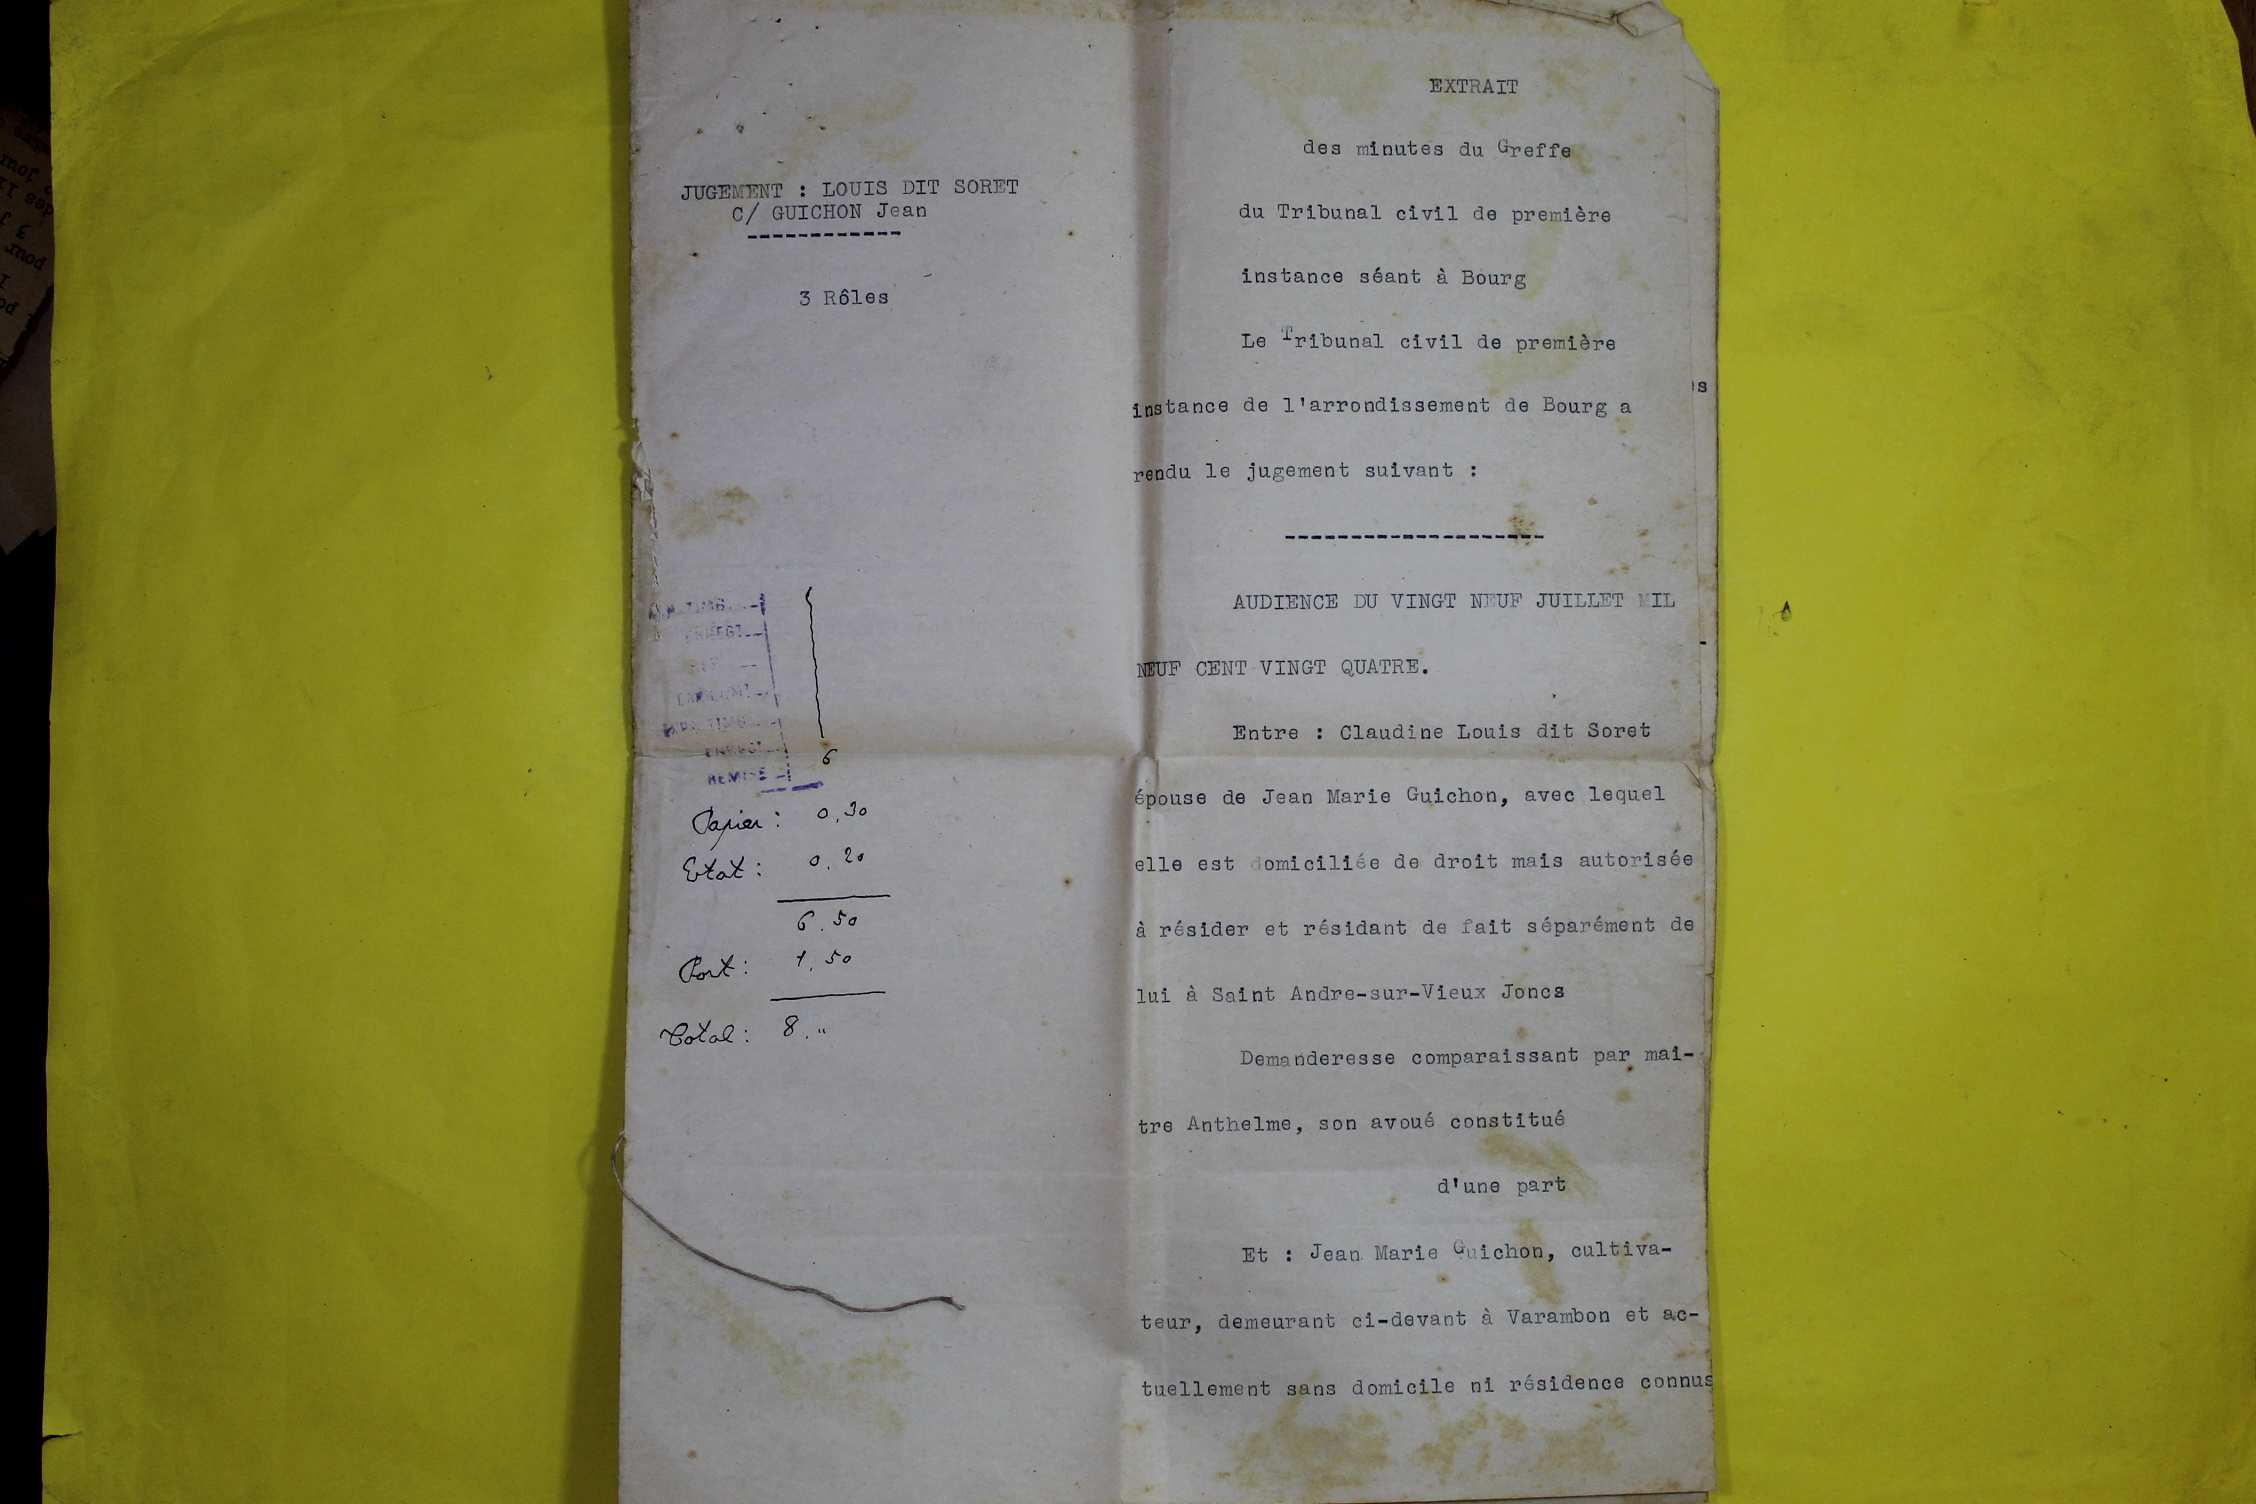 JUGEMENT : LOUIS DIT SORET
C/ GUICHON Jean
------------
3 Rôles
ENREGT
REMISE
6
Papier : 0.30
Etat : 0.20
6.50
Port : 1.50
Total : 8."
EXTRAIT
des minutes du Greffe
du Tribunal civil de première
instance séant à Bourg
Le Tribunal civil de première
instance de l'arrondissement de Bourg a
rendu le jugement suivant :
--------------------
AUDIENCE DU VINGT NEUF JUILLET MIL
NEUF CENT VINGT QUATRE.
Entre : Claudine Louis dit Soret
épouse de Jean Marie Guichon, avec lequel
elle est domiciliée de droit mais autorisée
à résider et résidant de fait séparément de
lui à Saint Andre-sur-Vieux Joncs
Demanderesse comparaissant par mai-
tre Anthelme, son avoué constitué
d'une part
Et : Jean Marie Guichon, cultiva-
teur, demeurant ci-devant à Varambon et ac-
tuellement sans domicile ni résidence connus